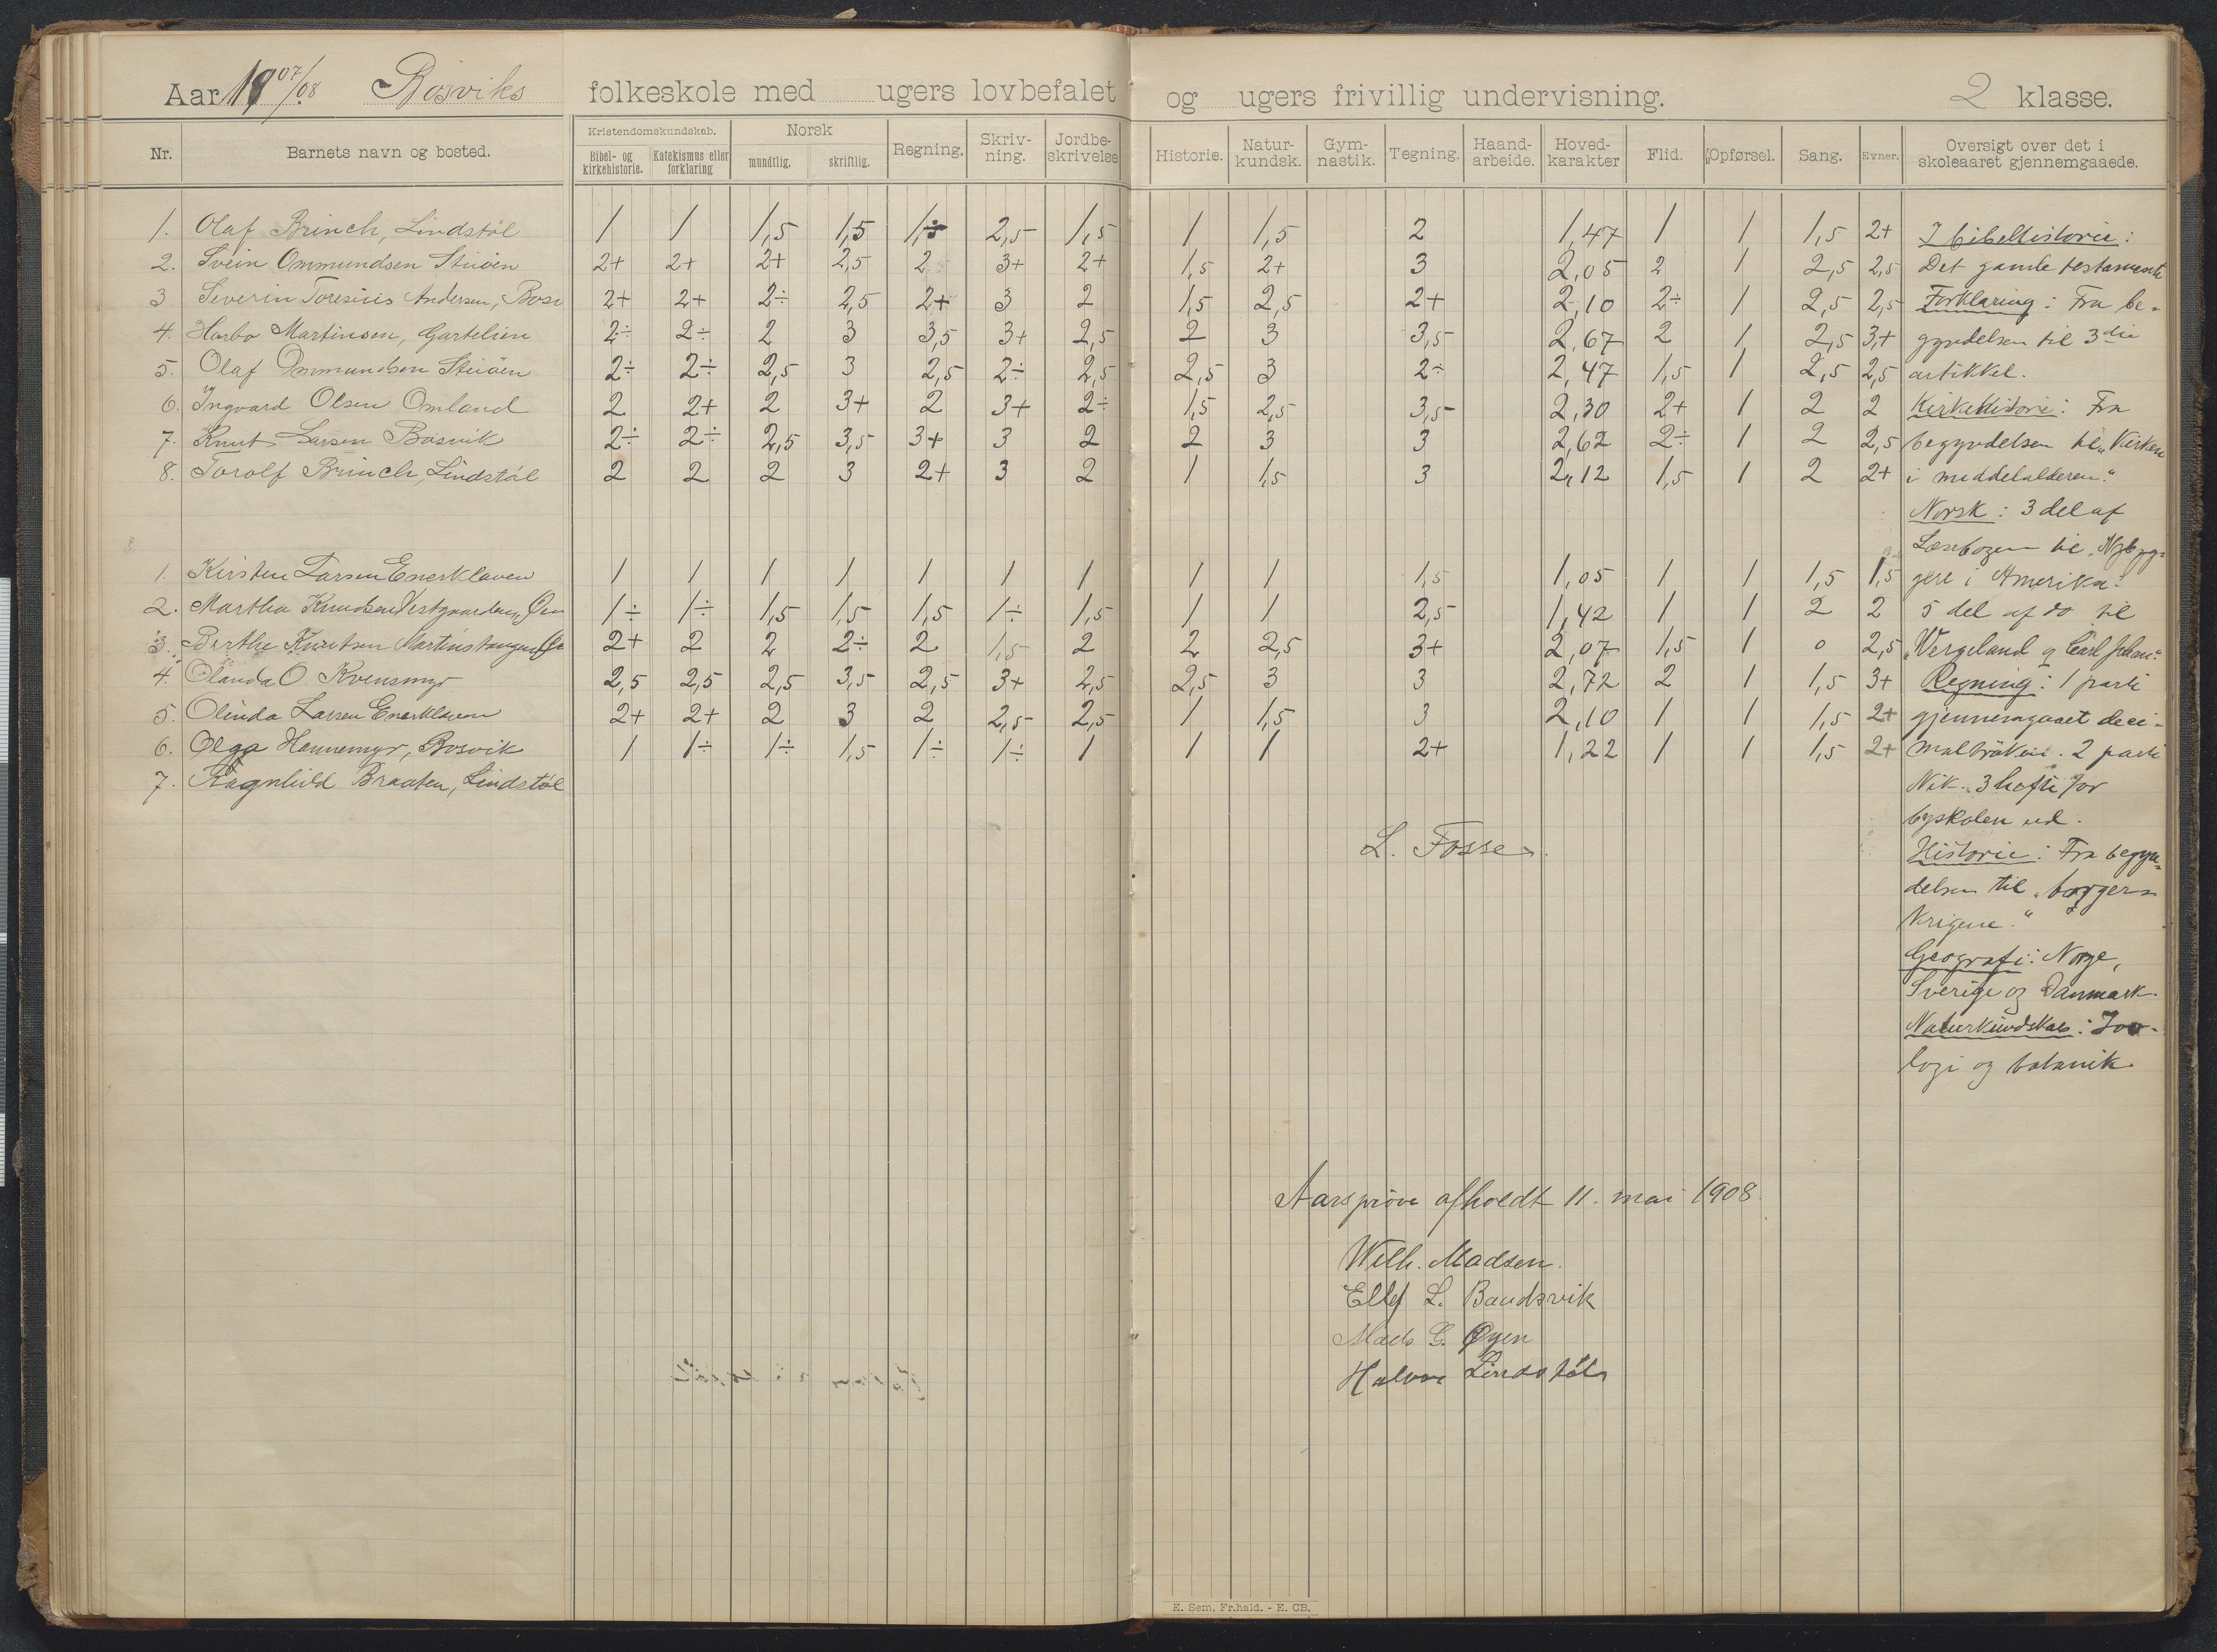 Aar 1907/08 Bosviks folkeskole med ugers lovbefalet og ugers frivillig undervisning. 2 klasse.
Nr. Barnets navn og bosted. Kristendomskundskab. Bibel- og kirkehistorie. Katekismus eller forklaring Norsk mundtlig. skriftlig. Regning. Skriv-ning. Jordbe-skrivelse Historie. Natur-kundsk. Gym-nastik. Tegning. Haand-arbeide. Hoved-karakter Flid. Opførsel. Sang. Evner. Oversigt over det i skoleaaret gjennemgaaede.
1. Olaf Brinch, Lindstøl 1 1 1,5 1,5 1,5 2,5 1,5 1 1,5 2 1,47 1 1 1,5 2+
2. Svein Ommundsen Stuöen 2+ 2+ 2+ 2,5 2 3+ 2+ 1,5 2+ 3 2,05 2 1 2,5 2,5
3 Severin Toresius Andersen, Bosv 2+ 2+ 2÷ 2,5 2+ 3 2 1,5 2,5 2+ 2,10 2÷ 1 2,5 2,5
4. Harbo Martinsen, Gartelien 2÷ 2÷ 2 3 3,5 3+ 2,5 2 3 3,5 2,67 2 1 2,5 3+
5. Olaf Ommundsen Stuöen 2÷ 2÷ 2,5 3 2,5 2÷ 2,5 2,5 3 2÷ 2,47 1,5 1 2,5 2,5
6. Ingvard Olsen Omland 2 2+ 2 3+ 2 3+ 2÷ 1,5 2,5 3,5 2,30 2+ 1 2 2
7. Knut Larsen Bosvik 2÷ 2÷ 2,5 3,5 3+ 3 2 2 3 3 2,62 2÷ 1 2 2,5
8. Torolf Brinch, Lindstøl 2 2 2 3 2+ 3 2 1 1,5 3 2,12 1,5 1 2 2+
1. Kirsten Larsen Enerklaven 1 1 1 1 1 1 1 1 1 1,5 1,05 1 1 1,5 1,5
2. Martha Knudsen Vestgaarden, 1÷ 1÷ 1,5 1,5 1,5 1÷ 1,5 1 1 2,5 1,42 1 1 2 2
3. Berthe Knutsen Martinstangen 2+ 2 2 2÷ 2 1,5 2 2 2,5 3+ 2,07 1,5 1 0 2,5
4. Olanda O. Kvensmyr 2,5 2,5 2,5 3,5 2,5 3+ 2,5 2,5 3 3 2,72 2 1 1,5 3+
5. Olinda Larsen Enerklaven 2+ 2+ 2 3 2 2,5 2,5 1 1,5 3 2,10 1 1 1,5 2+
6. Olga Hennemyr, Bosvik 1 1÷ 1÷ 1,5 1÷ 1÷ 1 1 1 2+ 1,22 1 1 1,5 2+
7. Ragnhild Braaten, Lindstøl
I bibelhistorie:
Det gamle testamente
Forklaring: Fra be-
gyndelsen til 3die
artikkel.
Kirkehistorie: Fra
begyndelsen til "Kirken
i middelalderen."
Norsk: 3 del af
Læsebogen til "Nybyg-
gere i Amerika."
5 del af do til
"Vergeland og Carl Johan".
Regning: 1 parti
gjennemgaaet deci-
malbröken. 2 parti
Nik. 3 hefte for
byskolen ud.
Historie: Fra begyn-
delsen til "borger-
krigene."
Geografi: Norge,
Sverige og Danmark.
Naturkundskab: Zoo-
logi og botanik.
L. Fosse
Aarsprøve afholdt 11. mai 1908
Wilh. Madsen.
Ellef L. Baudsvik
Mads G. Øyen
Halvor Lindstøl
E. Sem. Fr.hald. - E. CB.